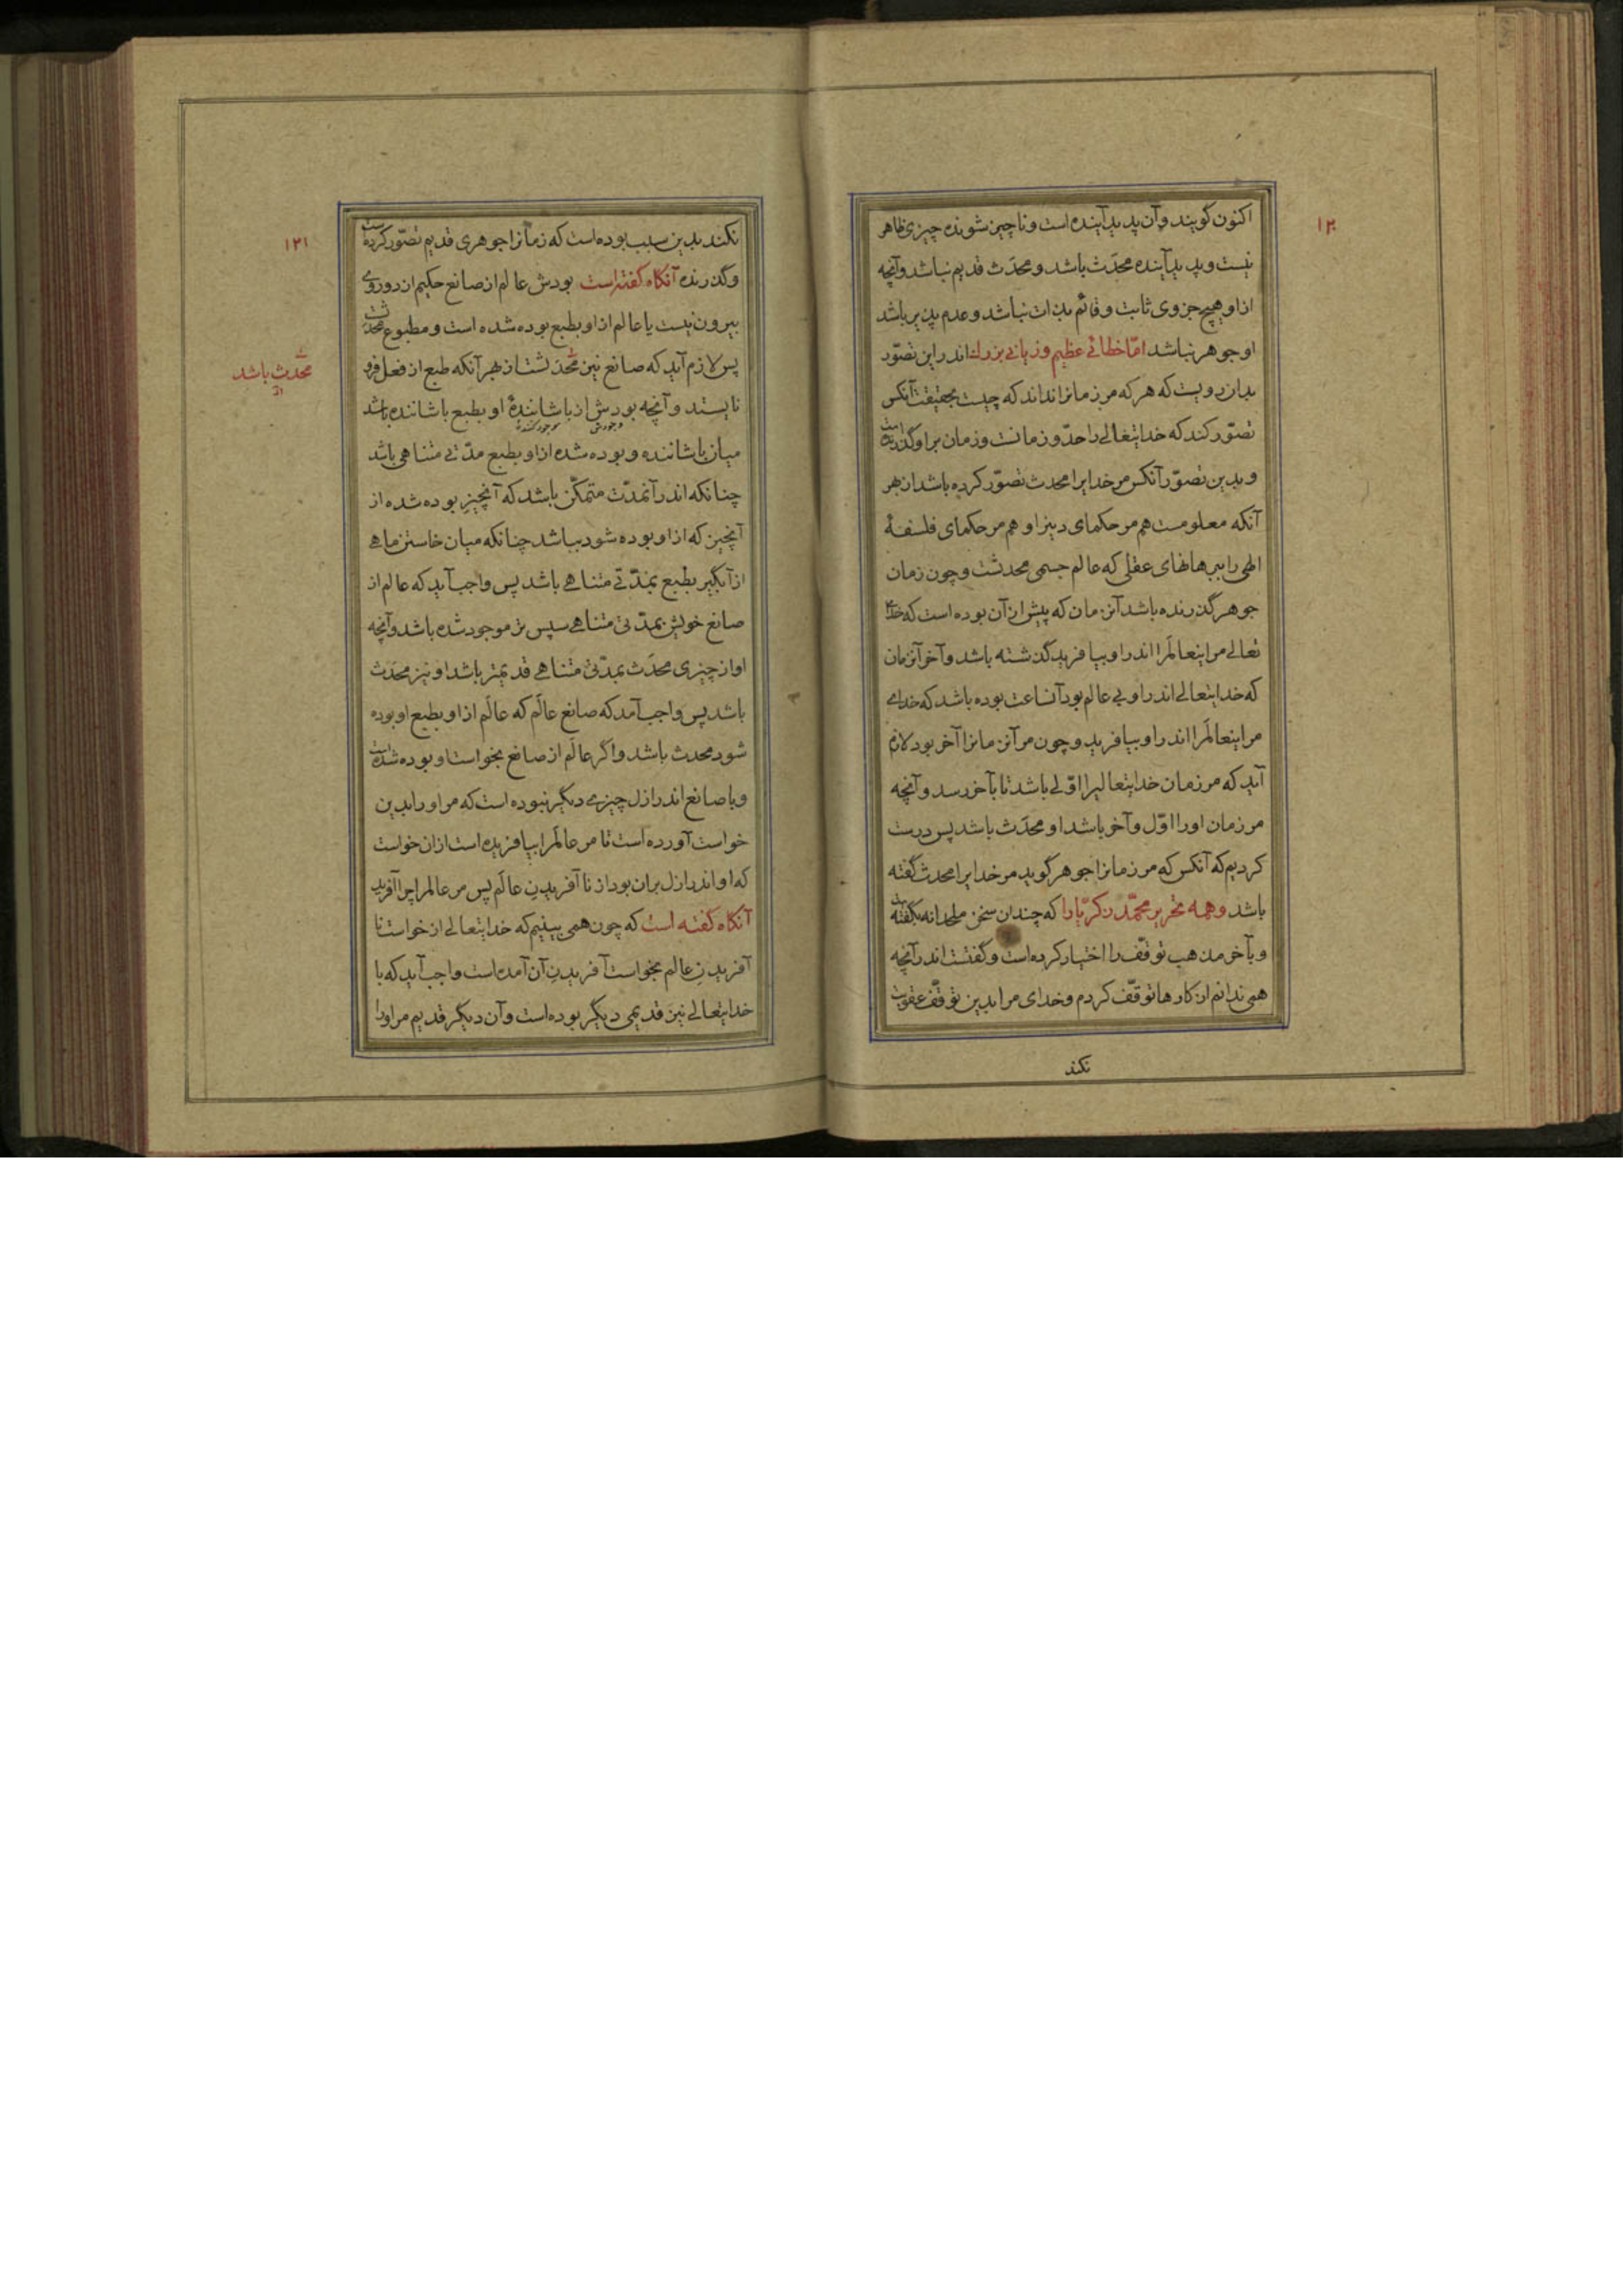 ۱۲۰
اکنون گویند و آن پدید آینده است و ناچیز شونده چیزی ظاهر
نیست و پدید آینده محدَث باشد و محدَث قدیم نباشد و آنچه
ازاو هیچ جزوی ثابت و قائم بذات نباشد و عدم پذیر باشد
او جوهر نباشد امّا خطائی عظیم و زیانی بزرك اندر این تصوّر
بدان رویست که هر که مر زمانرا نداند که چیست بحقیقت آنکس
تصوّر کند که خدایتعالی را حدّ و زمانست و زمان بر او گذرنده است
و بدین تصوّر آنکس مر خدایرا محدث تصوّر کرده باشد از بهر
آنکه معلومست هم مر حکمای دینرا و هم مر حکمای فلسفهٔ
الهی را ببرهانهای عقلی که عالم جسمی محدثست و چون زمان
جوهر گذرنده باشد آنزمان که پیش از آن بوده است که خدای
تعالی مر اینعالَمرا اندر او بیافرید گذشته باشد و آخر آنزمان
که خدایتعالی اندر او بی عالم بود آنساعت بوده باشد که خدای
مر اینعالَمرا اندر او بیافرید و چون مر آنزمانرا آخر بود لازم
آید که مر زمان خدایتعالیرا اوّلی باشد تا بآخر رسد و آنچه
مر زمان اورا اوّل و آخر باشد او محدَث باشد پس درست
کردیم که آنکس که مر زمانرا جوهر گوید مر خدایرا محدث گفته
باشد و همه تحریر محمّد زکریّا را که چندان سخن ملحدانه بگفته است
و بآخر مذهب توقّف را اختیار کرده است و گفتست اندر آنچه
همی ندانم از کارها توقّف کردم و خدای مرا بدین توقّف عقوبت
نکند
۱۲۱
نکند بدین سبب بوده است که زمانرا جوهری قدیم تصوّر کرده است
و گذرنده آنگاه گفته است بودش عالم از صانع حکیم از دو روی
بیرون نیست یا عالم ازاو بطبع بوده شده است و مطبوع محدثست
پس لازم آید که صانع نیز محدَثست از بهر آنکه طبع از فعل فرو
نایستد و آنچه بودش از باشانندهٔ او بطبع باشاننده باشد
وجودش موجود کننده
میان باشاننده و بوده شده ازاو بطبع مدّتی متناهی باشد
چنانکه اندر آنمدّت متمکّن باشد که آنچیز بوده شده از
آنچیز که ازاو بوده شود بباشد چنانکه میان خاستن ماهی
از آبگیر بطبع بمدّتی متناهی باشد پس واجب آید که عالم از
صانع خویش بمدّتی متناهی سپس تر موجود شده باشد و آنچه
او از چیزی محدَث بمدّتی متناهی قدیمتر باشد او نیز محدَث
باشد پس واجب آمد که صانع عالَم که عالَم ازاو بطبع او بوده
شود محدث باشد و اگر عالَم از صانع بخواست او بوده شده است
و با صانع اندر ازل چیزی دیگر نبوده است که مر اورا بدین
خواست آورده است تا مر عالَمرا بیافریده است ازان خواست
که او اندر ازل بران بود از نا آفریدنِ عالَم پس مر عالمرا چرا آفرید
آنگاه گفته است که چون همی بینیم که خدایتعالی از خواست نا
آفریدن عالم بخواست آفریدنِ آن آمده است واجب آید که با
خدایتعالی نیز قدیمی دیگر بوده است و آن دیگر قدیم مر اورا
محدث باشد